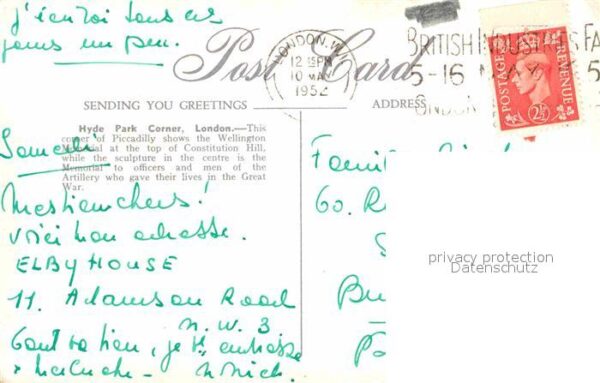 j'écris tous ces
jours un peu.
Post Card
LONDON. W.
12 15PM
10 MAY
1952
BRITISH INDUSTRIES FA
5-16 MAY 5
LONDON
POSTAGE REVENUE
2½D
SENDING YOU GREETINGS
ADDRESS
Hyde Park Corner, London.—This
corner of Piccadilly shows the Wellington
Memorial at the top of Constitution Hill,
while the sculpture in the centre is the
Memorial to officers and men of the
Artillery who gave their lives in the Great
War.
Samedi
Mes tien chers!
Voici mon adresse.
ELBY HOUSE
11. Adamson Road
N.W. 3
tout va bien, je
60. R
privacy protection
Datenschutz